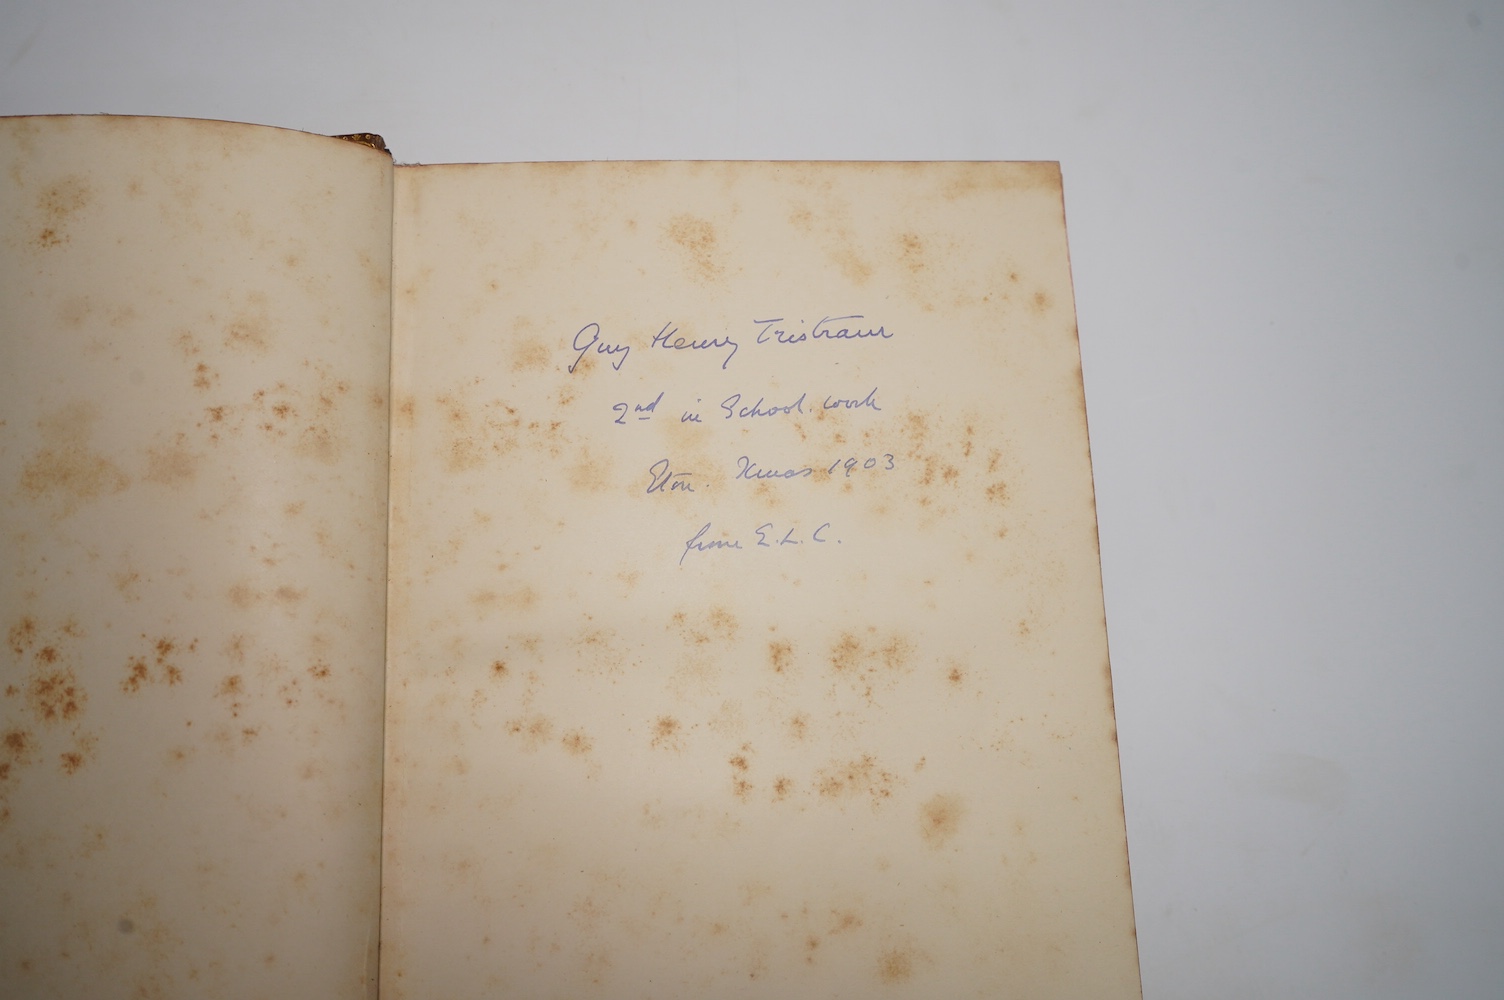 Guy Henry Tristram
2nd in School. work
Eton. Xmas 1903
from E.L.C.